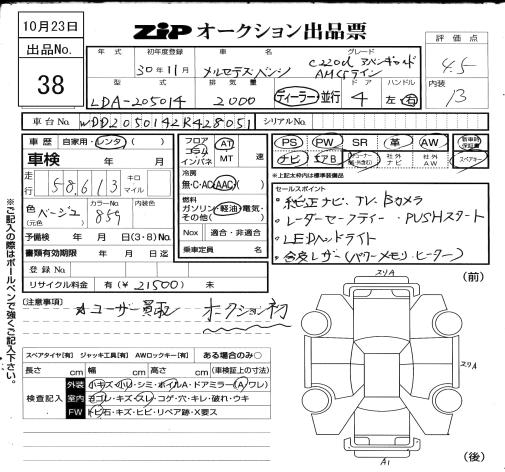 10月23日 ZIP オークション出品票
出品No.
38
年式 初年度登録 車名 グレード 評価点
30年11月 メルセデスベンツ C220d アバンギャルド AMGライン 4.5
型式 排気量 ドア ハンドル 内装
LDA-205014 2000 ディーラー・並行 4 左・右 13
車台No. WDD2050142R428051 シリアルNo.
車歴 自家用・レンタ
車検 年 月
走行 58,613 キロ マイル
色 (元色) ベージュ カラーNo. 859 内装色
予備検 年 月 日(3・8)No.
書類有効期限 年 月 日
登録No.
リサイクル料金 有(¥21500) 未
フロア コラム インパネ AT MT 速
冷房 無・C・AC・AAC
燃料 ガソリン・軽油・電気・その他( )
Nox 適合・非適合
乗車定員 名
PS PW SR 革 AW 新車時保証書
ナビ エアB 社外ナビ 社外AW スペアキー
※上記太枠内は標準装備品
セールスポイント
・純正ナビ、TV、Bカメラ
・レーダーセーフティー・PUSHスタート
・LEDヘッドライト
・合皮レザー(パワーメモリ・ヒーター)
〈注意事項〉
☆ユーザー買取 オークション初
※ご記入の際はボールペンで強くご記入下さい。
スペアタイヤ[有] ジャッキ工具[有] AWロックキー[有] ある場合のみ○
長さ cm 幅 cm 高さ cm (車検証上の寸法)
検査記入
外装 小キズ・小凹・シミ・ホイルA・ドアミラー(A ワレ)
室内 ヨゴレ・キズ・スレ・コゲ・穴・キレ・破れ・ウキ
FW トビ石・キズ・ヒビ・リペア跡・X要ス
スリA (前)
スリA
A1 (後)